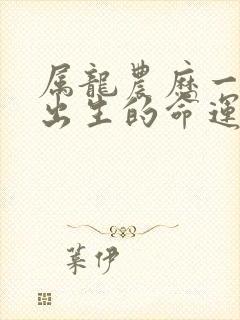 属龍農历一
出生的命運
葉伊